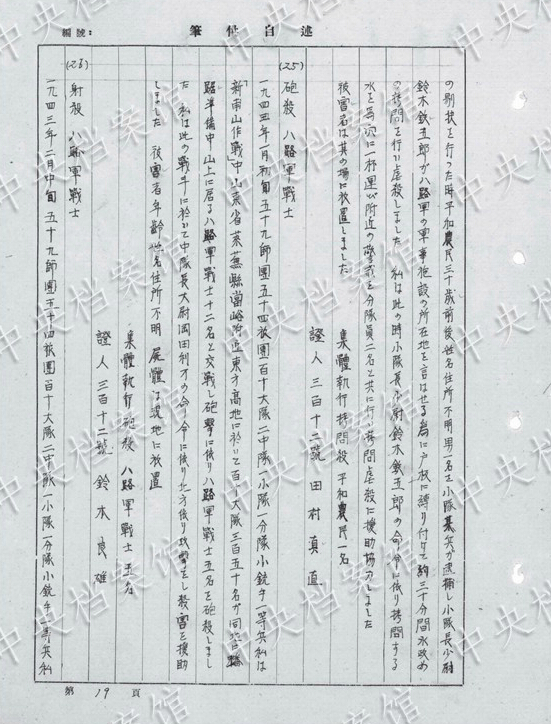 編號：
述自供筆
の剔抉を行った時平和農民三十歳前後姓名住所不明男一名を小隊兵が逮捕し小隊長少尉
鈴木敏五郎が八路軍の軍事施設の所在地を言はせる為に戸板に縛り付けて約三十分間水攻め
の拷問を行ひ虐殺しました 私は此の時小隊長少尉鈴木敏五郎の命令に依り拷問する
水を 一杯運び附近の警戒を分隊員二名と共に行ひ拷問虐殺に援助協力しました
被害者は其の場に放置しました
集體執行拷問殺平和農民一名
證人 三百十二號 田村貞直
(25)
砲殺 八路軍戰士
一九四三年一月初旬五十九師團五十四旅團百十大隊二中隊一小隊一分隊小銃手一等兵私は
新南山作戰中山東省萊蕪縣 峪附近東方高地に於いて百十大隊三百五十名が同
準備中山上に居る八路軍戰士十二名と交戰し砲撃に依り八路軍戰士五名を砲殺しまし
た 私は此の戰斗に於いて中隊長大尉岡田利才の命令に依り北方依り攻撃をし殺害を援助
しました 被害者年齡姓名住所不明 屍體は現地に放置
集體執行砲殺 八路軍戰士五名
證人 三百十二號 鈴木良雄
(26)
射殺 八路軍戰士
一九四三年二月中旬五十九師團五十四旅團百十大隊二中隊一小隊一分隊小銃手一等兵私
第 19 頁
中央档案馆